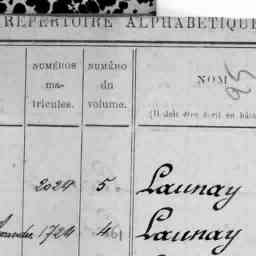 RÉPERTOIRE ALPHABÉTIQUE
NUMÉROS ma- tricules.
NUMÉRO du volume.
NOM
95
(Il doit être écrit en bâta
2029 5. Launay
1729 4 Launay